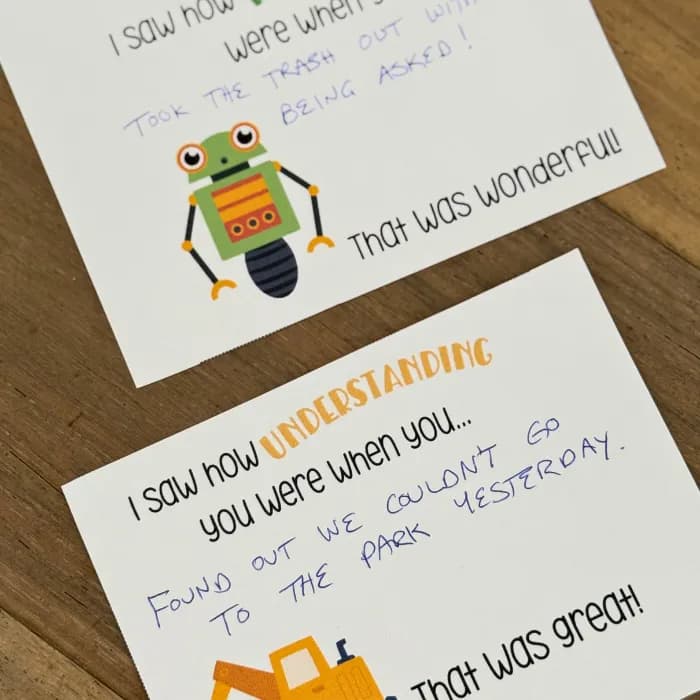 I saw how
were when
TOOK THE TRASH OUT
BEING ASKED!
That was wonderful!
I saw how UNDERSTANDING
you were when you...
FOUND OUT WE COULDN'T GO
TO THE PARK YESTERDAY.
That was great!